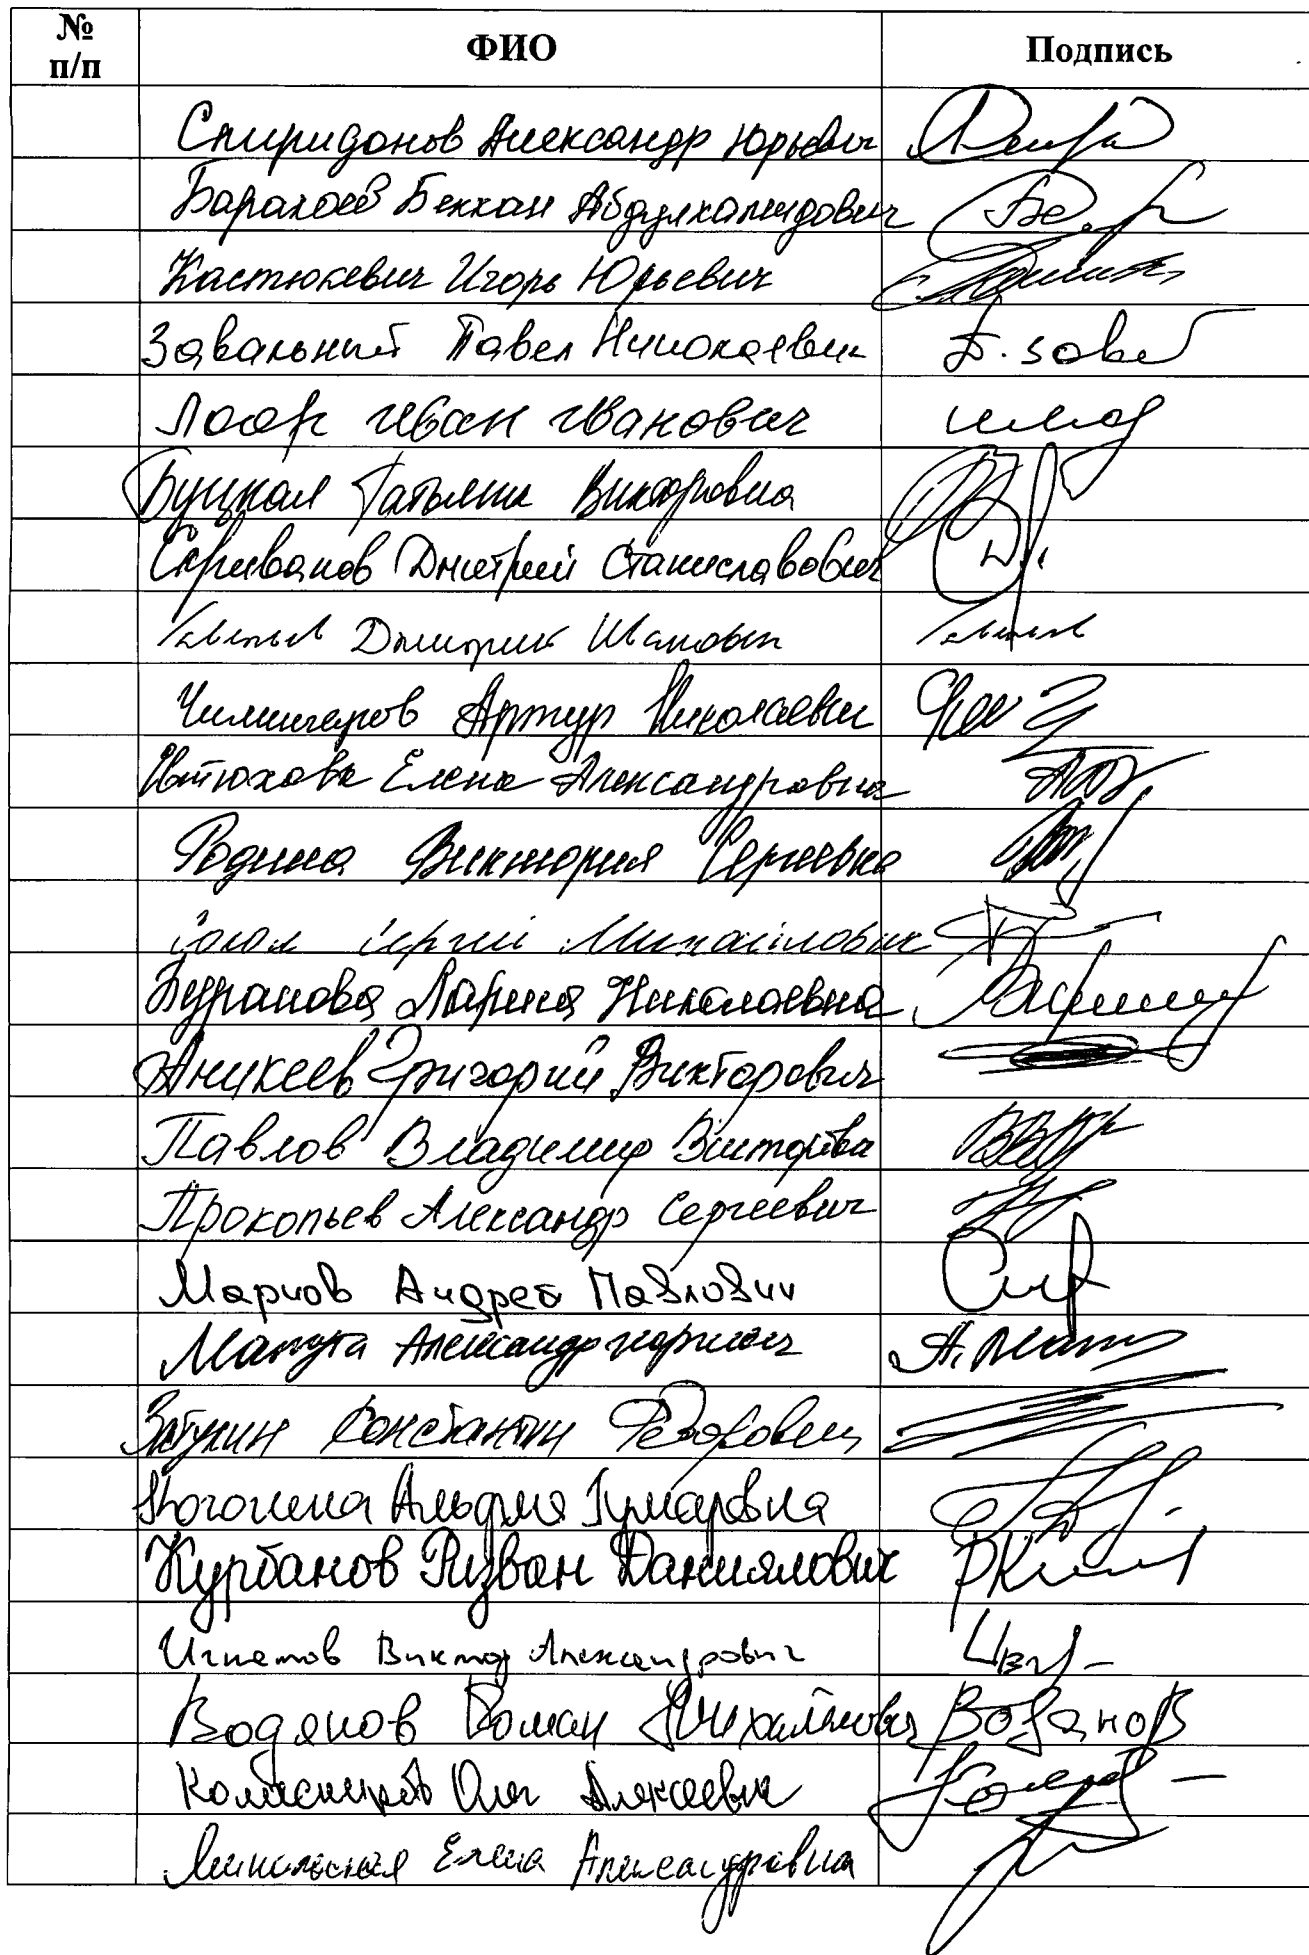 № п/п ФИО Подпись
Спиридонов Александр Юрьевич
Барахоев Бекхан Абдулхамидович
Кастюкевич Игорь Юрьевич
Завальный Павел Николаевич П. Завал
Лоор Иван Иванович
Буцкая Татьяна Викторовна
Скриванов Дмитрий Станиславович
Дмитрий Иванович
Чилингаров Артур Николаевич
Ивтюхова Елена Александровна
Родина Виктория Сергеевна
Сокол Сергей Михайлович
Буранова Лариса Николаевна
Аникеев Григорий Викторович
Павлов Владимир Викторович
Прокопьев Александр Сергеевич
Марков Андрей Павлович
Мажуга Александр Георгиевич
Затулин Константин Федорович
Когогина Альфия Гумаровна
Курбанов Ризван Даниялович
Игнатов Виктор Александрович
Водянов Роман Михайлович Водянов
Колесников Олег Алексеевич
Ямпольская Елена Александровна